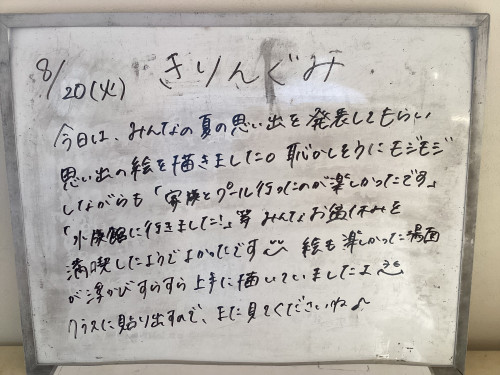 8/20(火) きりんぐみ
今日は、みんなの夏の思い出を発表してもらい
思い出の絵を描きました。恥かしそうにモジモジ
しながらも「家族とプール行ったのが楽しかったです」
「水族館に行きました!」等 みんなお盆休みを
満喫したようでよかったです 絵も楽しかった場面
が浮かびすらすら上手に描いていましたよ
クラスに貼り出すので、また見てくださいね♪